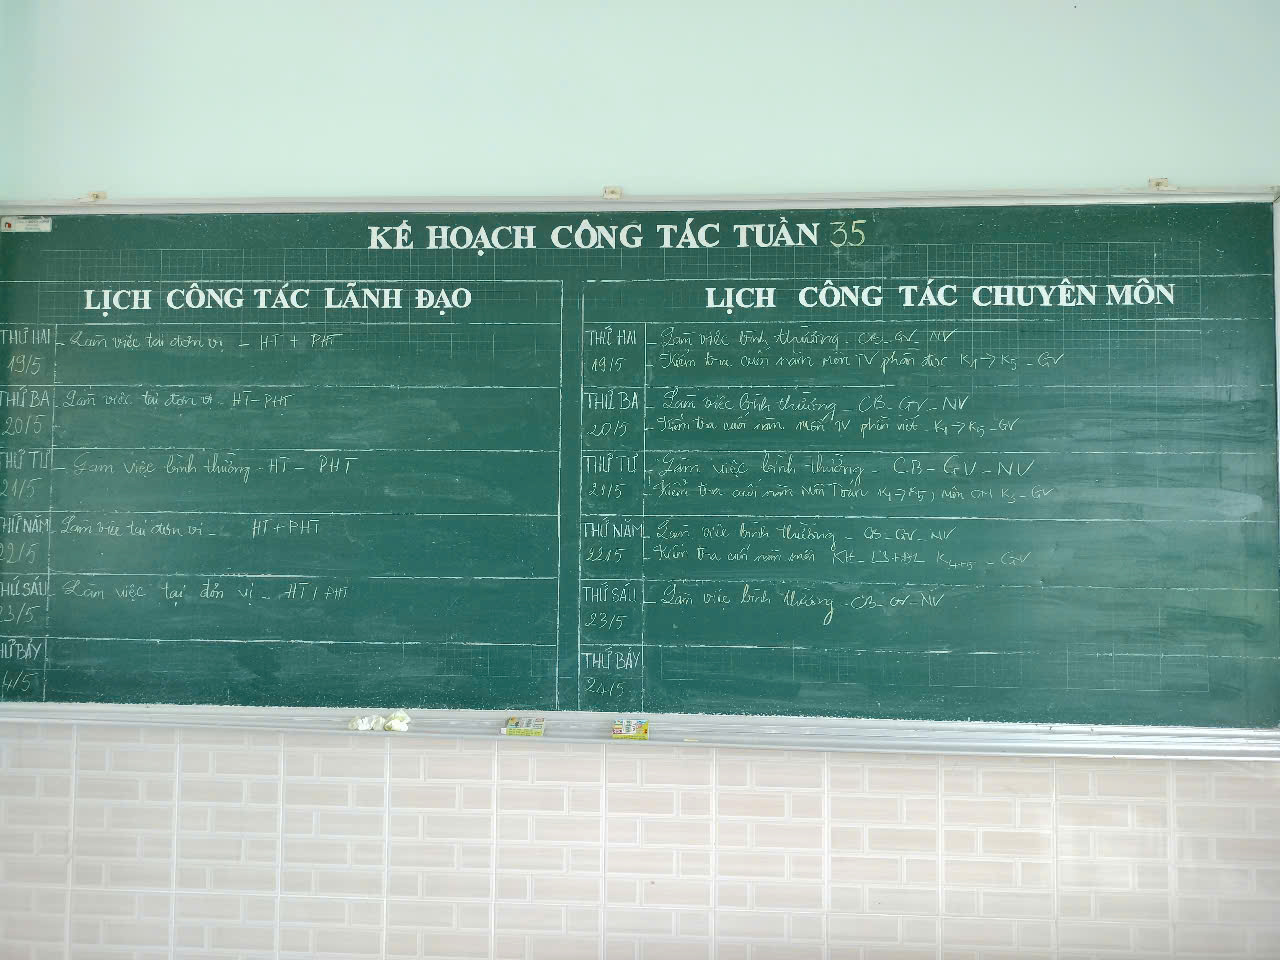 KẾ HOẠCH CÔNG TÁC TUẦN 35
LỊCH CÔNG TÁC LÃNH ĐẠO
THỨ HAI - Làm việc tại đơn vị - HT + PHT
19/5
THỨ BA - Làm việc tại đơn vị - HT - PHT
20/5 -
THỨ TƯ - Làm việc bình thường - HT - PHT
21/5
THỨ NĂM - Làm việc tại đơn vị - HT + PHT
22/5
THỨ SÁU - Làm việc tại đơn vị - HT, PHT
23/5
THỨ BẢY
4/5
LỊCH CÔNG TÁC CHUYÊN MÔN
THỨ HAI - Làm việc bình thường - CB - GV - NV
19/5 - Kiểm tra cuối năm môn TV phần đọc K1 → K5 - GV
THỨ BA - Làm việc bình thường - CB - GV - NV
20/5 - Kiểm tra cuối năm môn TV phần viết - K1 → K5 - GV
THỨ TƯ - Làm việc bình thường - CB - GV - NV
21/5 - Kiểm tra cuối năm môn Toán K1 → K5, môn K3 - GV
THỨ NĂM - Làm việc bình thường - CB - GV - NV
22/5 - Kiểm tra cuối năm môn KH - LS+ĐL K4+5 - GV
THỨ SÁU - Làm việc bình thường - CB - GV - NV
23/5
THỨ BẢY
24/5